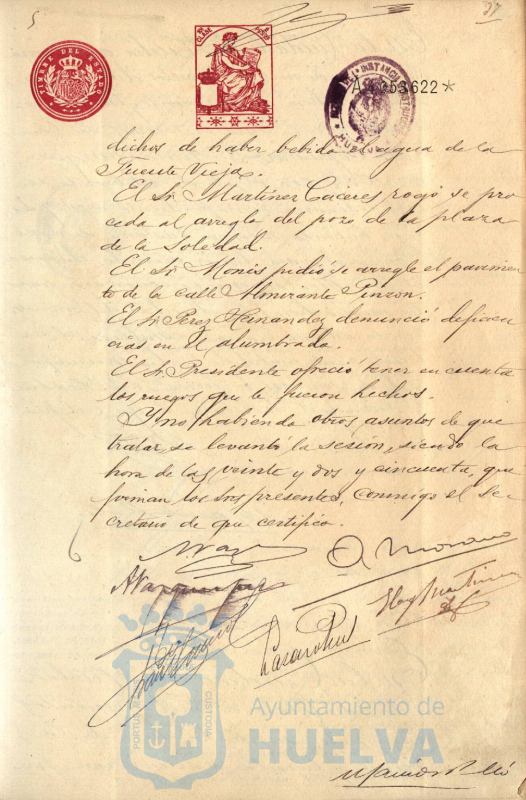 5
37
TIMBRE DEL ESTADO
CLASE
PESETA
INSTANCIA
HUELVA
A 4253622 *
dichos de haber bebido el agua de la
Fuente Vieja.
El Sr Martinez Caceres rogó se pro
ceda al arreglo del pozo de la plaza
de la Soledad.
El Sr Monis pidió se arregle el pavimen
to de la calle Almirante Pinzon.
El Sr Perez Hernandez denunció deficien
cias en el alumbrado.
El Sr Presidente ofreció tener en cuenta
los ruegos que le fueron hechos.
Y no habiendo otros asuntos de que
tratar, se levantó la sesión, siendo la
hora de las veinte y dos y cincuenta, que
firman los Sres presentes, conmigo el Se
cretario de que certifico.
A Vazquez
Eloy Martinez
PORTUS
CUSTODIA
Ayuntamiento de
HUELVA